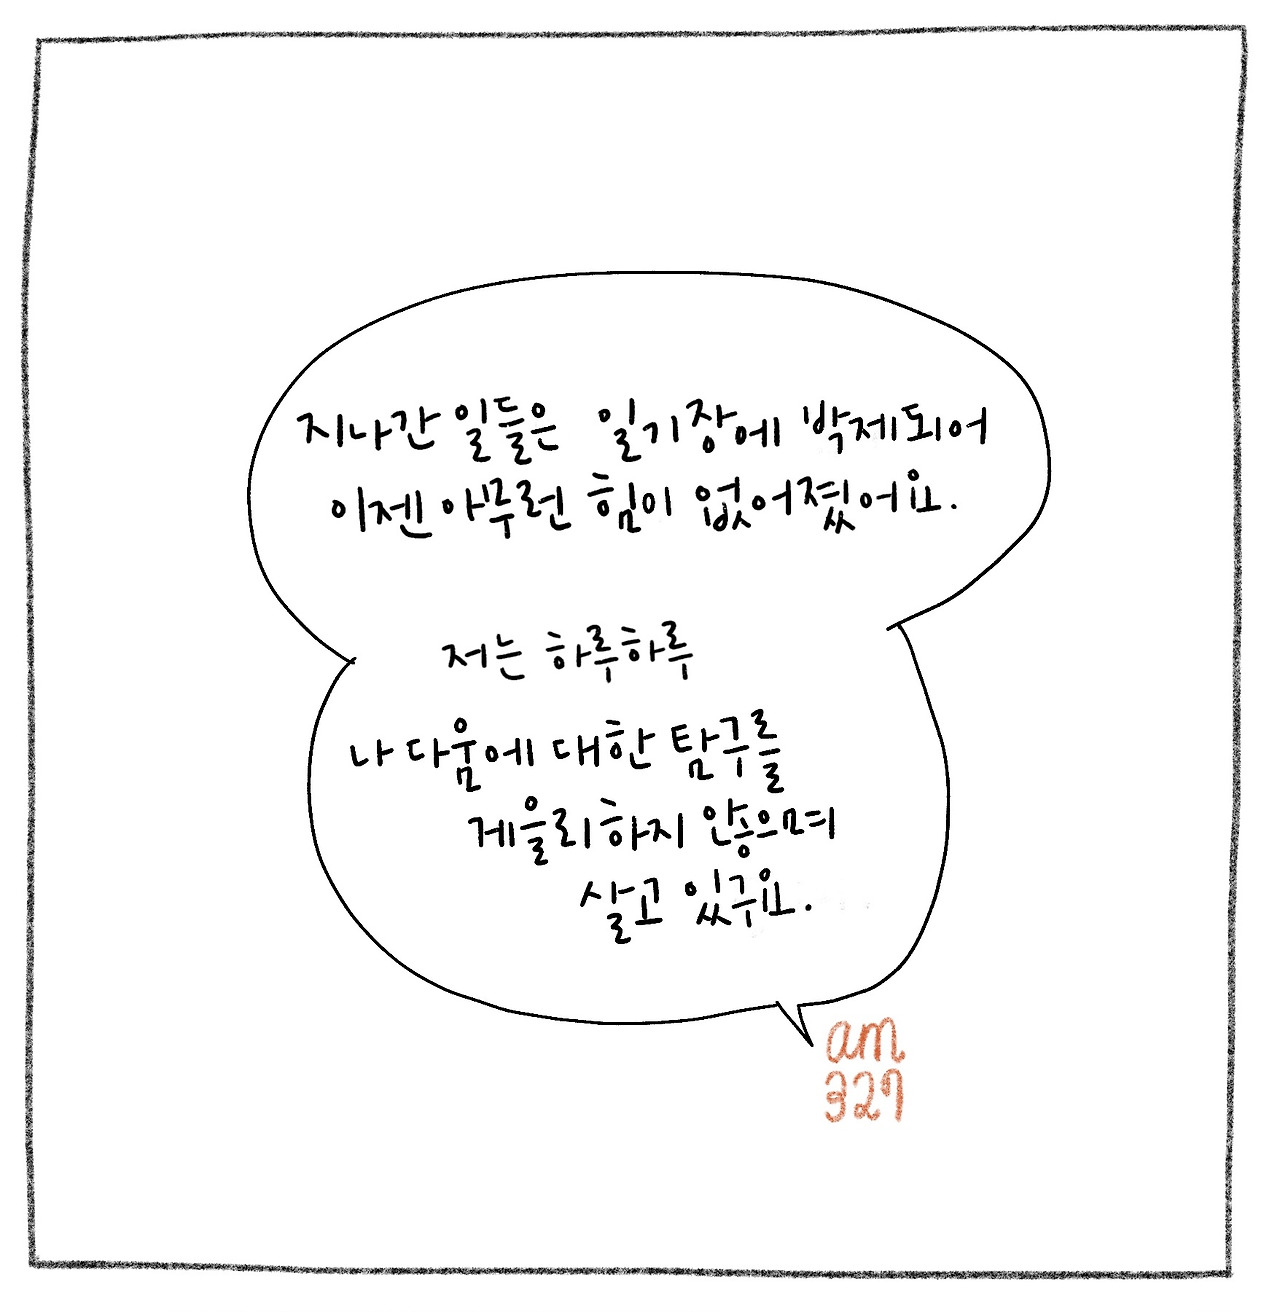 지나간 일들은 일기장에 박제되어
이젠 아무런 힘이 없어졌어요.
저는 하루하루
나 다움에 대한 탐구를
게을리하지 않으며
살고 있구요.
am
327